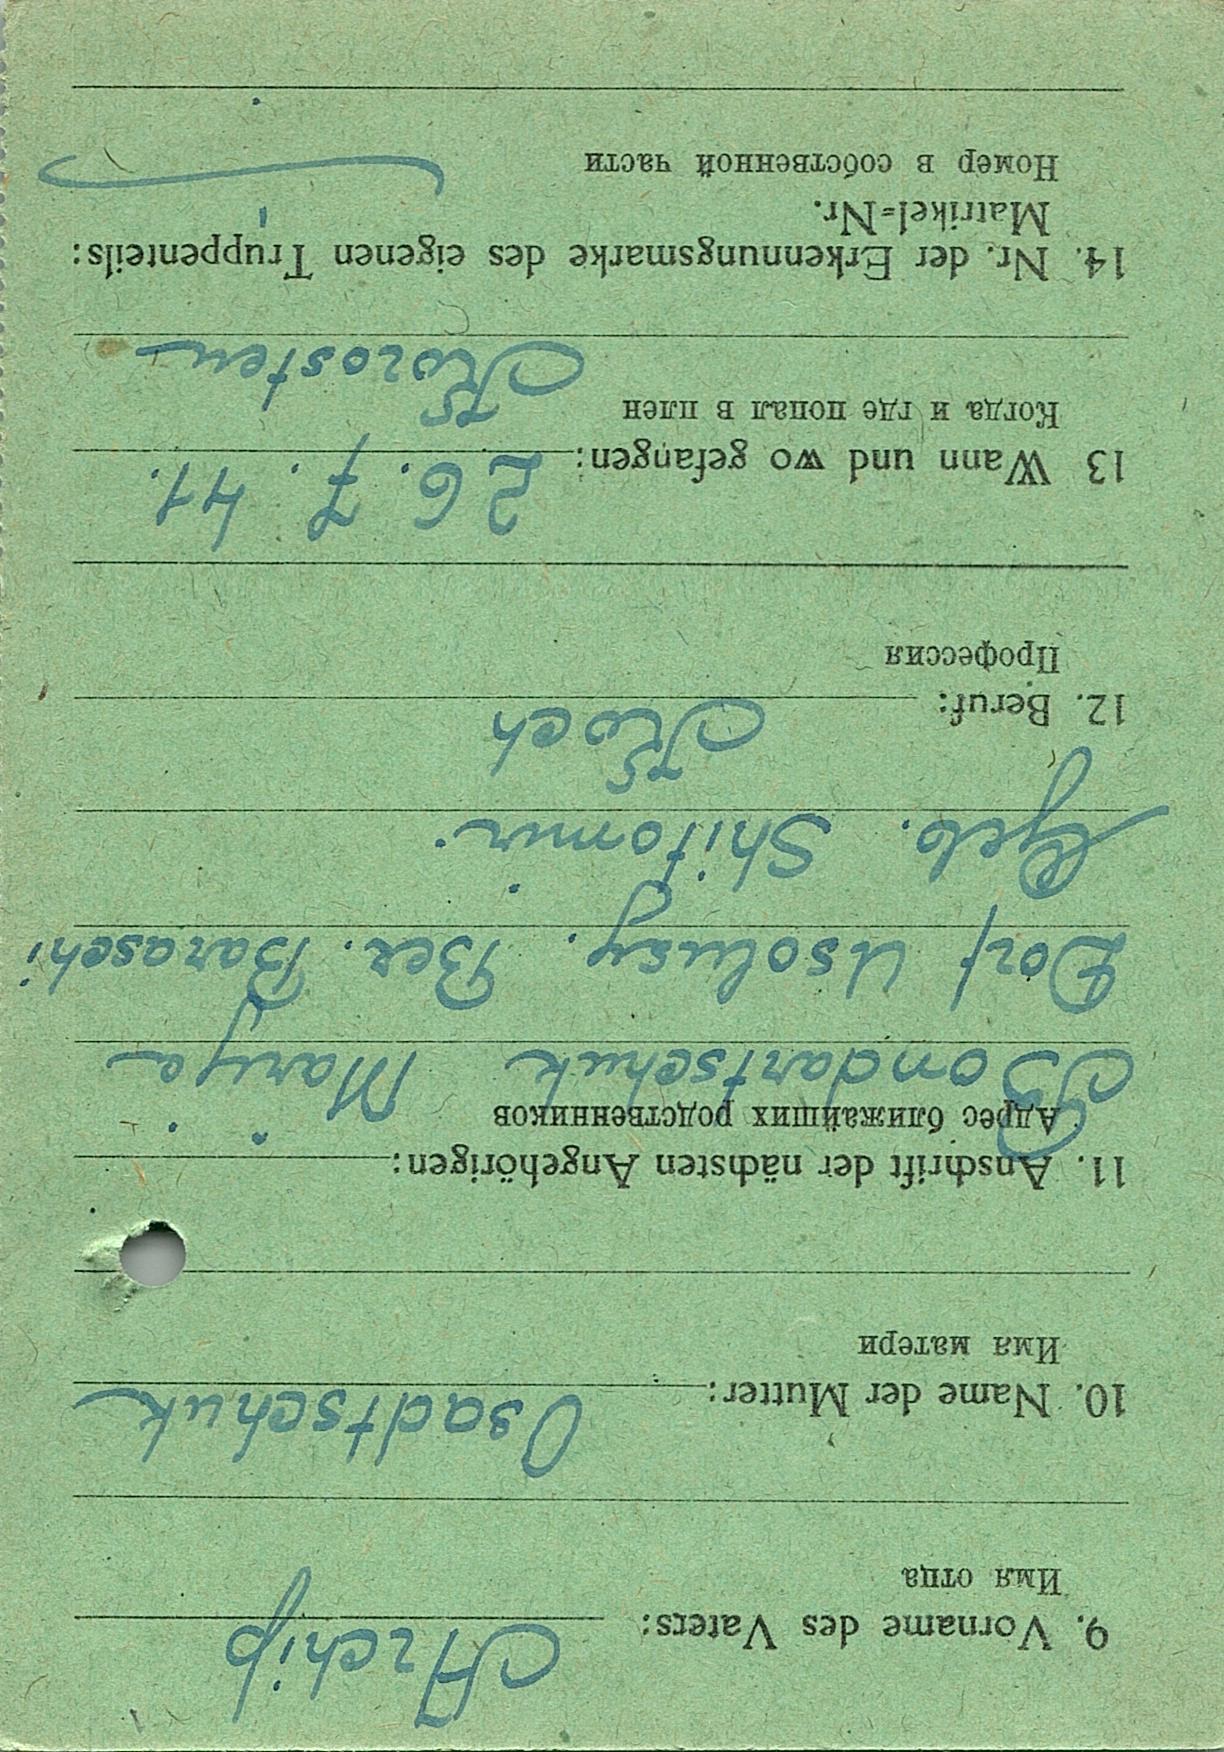 9. Vorname des Vaters: Archip
Имя отца
10. Name der Mutter: Osadtschuk
Имя матери
11. Anschrift der nächsten Angehörigen:
Адрес ближайших родственников
Bondartschuk Marija
Dorf Usolusy. Bez. Baraschi
Geb. Shitomir.
12. Beruf: Koch
Профессия
13 Wann und wo gefangen: 26.7.41.
Когда и где попал в плен
Korosten
14. Nr. der Erkennungsmarke des eigenen Truppenteils:
Matrikel=Nr.
Номер в собственной части